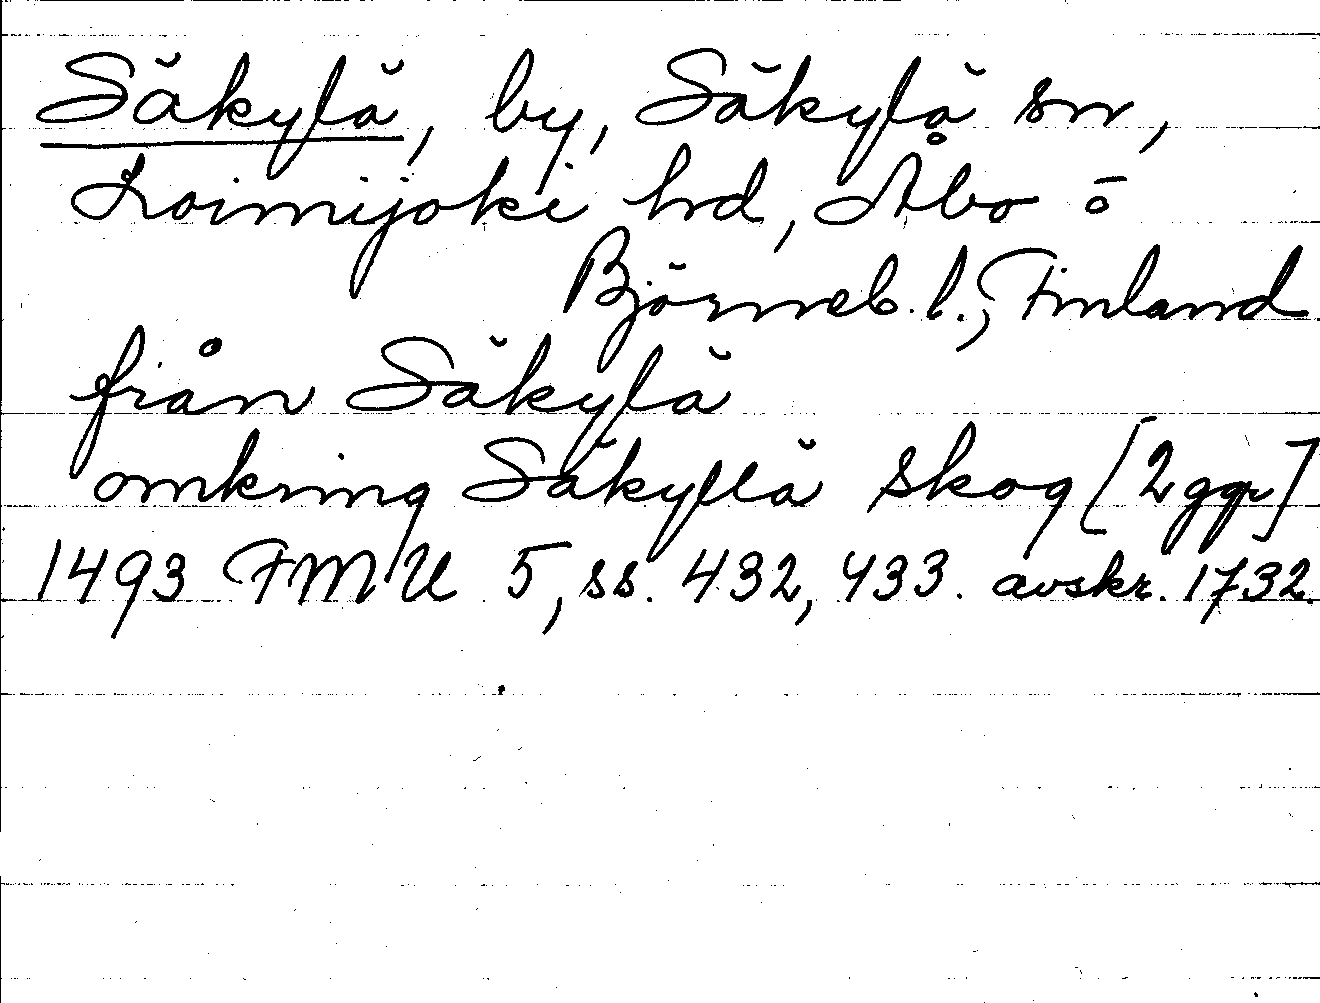 Säkylä, by, Säkylä sn,
Loimijoki hd, Åbo o
Björneb. l., Finland
från Säkylä
omkring Säkyllä skog [2 ggr]
1493 FMU 5, ss. 432, 433. avskr. 1732.